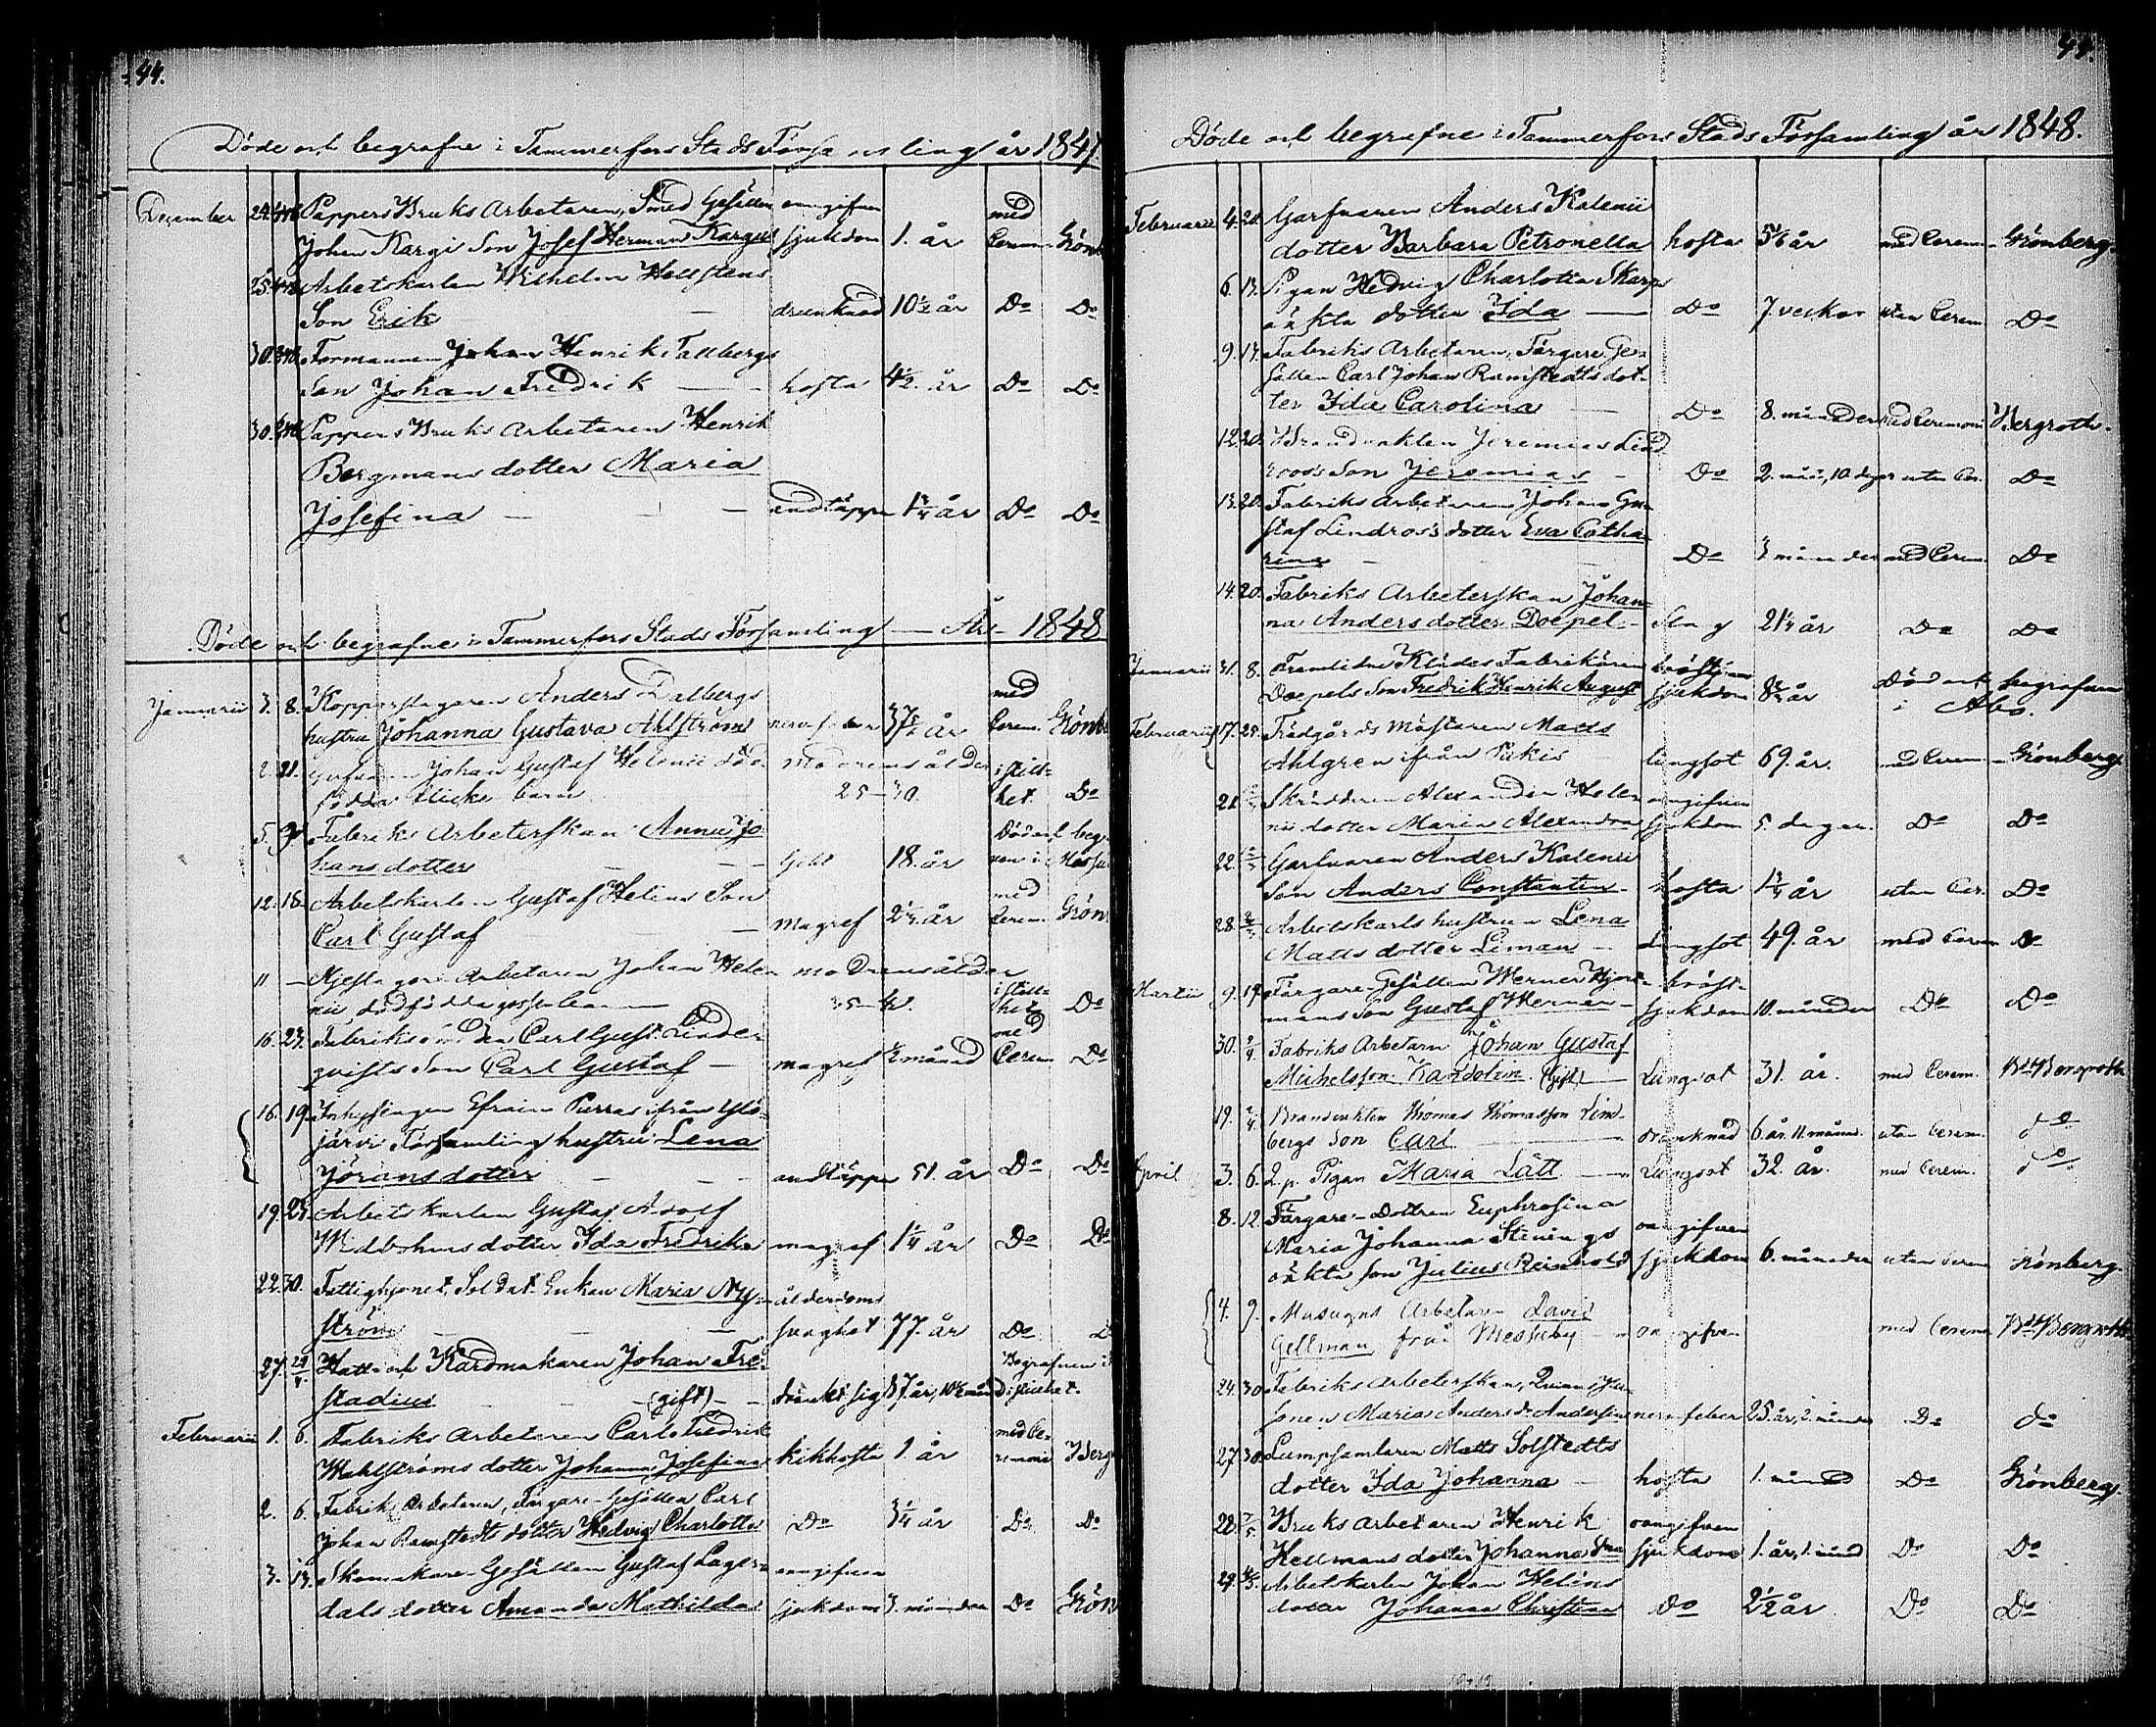 44.
Döde och begrafne i Tammerfors Stads Församling år 1847.
December 24. Pappers Bruks Arbetaren, Smed Gesällen oangifven med
Johan Kargi Son Josef Herman Kargel sjukdom 1. år Cerem. Grönb
25. Arbetskarlen Wilhelm Hellstens
Son Erik — drunknad 10½ år Do Do
30. Formannen Johan Henrik Tallbergs
Son Johan Fredrik — hosta 4½ år Do Do
30. Pappers Bruks Arbetaren Henrik
Bergmans dotter Maria
Josefina — andtäppa 1¾ år Do Do
Döde och begrafne i Tammerfors Stads Församling — År 1848
Januarii 3. 8. Kopparslagaren Anders Dalbergs med
hustru Johanna Gustava Ahlström nervfeber år Cerem. Grönb
2. 21. Garfvaren Johan Gustaf Helenii död- modrens ålder i still-
födda flicke barn 25–30. het. Do
5. 9. Fabriks Arbeterskan Anna Jo- Död och beg.
hansdotter — 18. år ven i Messu
12. 18. Arbetskarlen Gustaf Helins Son med
Carl Gustaf — magref 2¼ år Cerem. Grönb
11 — arbetaren Johan Hele- modrens ålder i still-
nii dödfödda gossebarn — 35–40. het Do
16. 23. Fabrikssmeden Carl Gust. Linde- med
qvists Son Carl Gustaf — magref ½ månad Cerem Do
16. 19. Inhysingen Efraim Purras ifrån Ylö-
järvi Församling hustru Lena
Jöransdotter — andtäppa 51. år Do Do
19. 25. Arbetskarlen Gustaf Adolf
Widbohms dotter Ida Fredrika magref 1¼ år Do Do
22. 30. Fattighjonet, Soldat Enkan Maria Ny- ålderdoms
ström — svaghet 77. år Do D
27. Hatt- och Kardmakaren Johan Fre- Begrafven i
stadius — (gift) — dränkt sig 37 år, 10½ månad i stillhet.
Februarii 1. 6. Fabriks Arbetaren Carl Fredrik med Ce-
Wahlströms dotter Johanna Josefina kikhosta 1 år remoni Berg
2. 6. Fabriks Arbetaren, Färgare-Gesällen Carl
Johan Ramstedts dotter Hedvig Charlotta Do 3¼ år Do Do
3. 13. Skomakare-Gesällen Gustaf Lager- oangifven
dals dotter Amanda Mathilda sjukdom 3. månader Do Grön
Döde och begrafne i Tammerfors Stads Församling år 1848.
Februarii 4. 20. Garfvaren Anders Kalenii
dotter Barbara Petronella hosta år med Cerem. Grönberg.
6. 13. Pigan Hedvig Charlotta Skarps
oäkta dotter Ida — Do 7 veckor utan Cerem. Do
9. 13. Fabriks Arbetaren, Färgare Ge-
sällen Carl Johan Ramstedts dot-
ter Ida Carolina — Do 8. månader med Ceremoni Bergroth.
12. 20. Brandvakten Jeremias Lind-
roos's Son Jeremias — Do 2. mån, 10. dagar utan Cer. Do
13. 20. Fabriks Arbetaren Johan Gu-
staf Lindros's dotter Eva Catha-
rina — Do 3 månader med Cerem. Do
14. 20. Fabriks Arbeterskan Johan-
na Andersdotter Doepel. — 21¼ år Do Do
Januarii 31. 8. Framlidne Klädes Fabrikören bröst
Doepels Son Fredrik Henrik August sjukdom 8½ år Död och begrafven
i Åbo.
Februarii 17. 25. Trädgårds mästaren Matts
Ahlgren ifrån Pukis lungsot 69. år. med Cerem — Grönberg
21. Skräddaren Alexander Hele- oangifven
nii dotter Maria Alexandra sjukdom 5. dagar. Do Do
22. Garfvaren Anders Kalenii
Son Anders Constantin — hosta år utan Cer. Do
28. Arbetskarls hustrun Lena
Mattsdotter Leman — lungsot 49. år med Cerem Do
Martii 9. 19. Färgare-Gesällen Werner Hjort- bröst-
mans Son Gustaf Herman — sjukdom 10. månader Do Do
30. 2/4 Fabriks Arbetarn Johan Gustaf
Michelsson Kandolin (gift) — Lungsot 31. år. med Cerem. Bergroth
19. 2/4 Brandvakten Thomas Thomasson Lind-
bergs Son Carl — drunknad 6. år. 11. månad. utan Cerem. do
April 3. 6. Pigan Maria Lätt — Lungsot 32. år. med Cerem. do
8. 12. Färgare-Dottren Euphrosina
Maria Johanna Stenings oangifven
oäkta Son Julius Reinhold sjukdom 6. månader utan Cerem Grönberg.
4. 9. Masugns Arbetaren David
Gellman från Messuby — oangifven med Cerem. Bergroth
24. 30. Fabriks Arbeterskan, Qvinspers-
onen Maria Anders d. Andersin nervfeber 25. år, 2. månader Do do
27. 30. Lumpsamlaren Matts Solstedts
dotter Ida Johanna — hosta 1. månad Do Grönberg.
28. 7/5 Bruks Arbetaren Henrik oangifven
Hellmans dotter Johanna sjukdom 1. år, 1. månd Do Do
29. Arbetskarlen Johan Helins
dotter Johanna Christina Do 2½ år Do Do